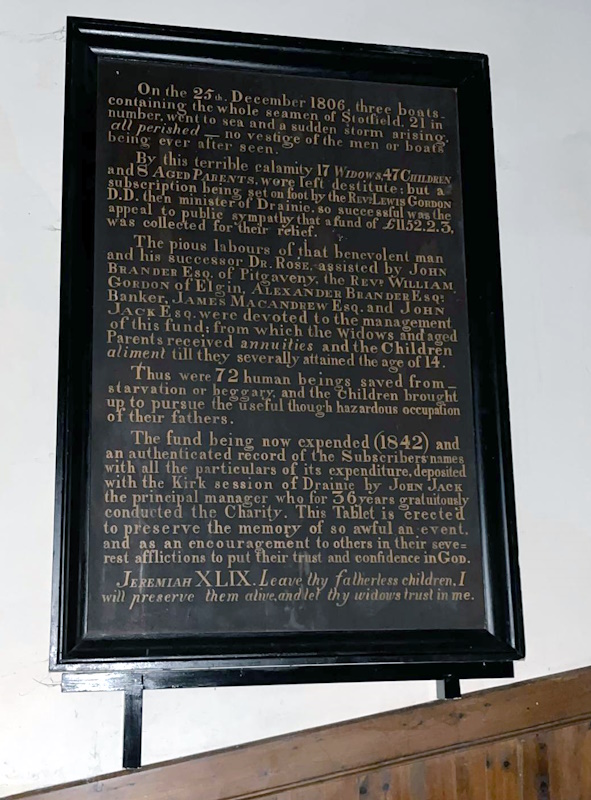 On the 25th December 1806, three boats-
containing the whole seamen of Stotfield, 21 in
number, went to sea and a sudden storm arising,
all perished — no vestige of the men or boats
being ever after seen.
By this terrible calamity 17 WIDOWS, 47 CHILDREN
and 8 AGED PARENTS, were left destitute: but a
subscription being set on foot by the REVD LEWIS GORDON
D.D. then minister of Drainie, so successful was the
appeal to public sympathy that a fund of £1152.2.3,
was collected for their relief.
The pious labours of that benevolent man
and his successor DR. ROSE, assisted by JOHN
BRANDER ESQ. of Pitgaveny, the REVD WILLIAM
GORDON of Elgin, ALEXANDER BRANDER ESQR
Banker, JAMES MACANDREW ESQ. and JOHN
JACK ESQ. were devoted to the management
of this fund; from which the Widows and aged
Parents received annuities and the Children
aliment till they severally attained the age of 14.
Thus were 72 human beings saved from —
starvation or beggary, and the children brought
up to pursue the useful though hazardous occupation
of their fathers.
The fund being now expended (1842) and
an authenticated record of the Subscribers names
with all the particulars of its expenditure, deposited
with the Kirk session of Drainie by JOHN JACK
the principal manager who for 36 years gratuitously
conducted the Charity. This Tablet is erected
to preserve the memory of so awful an event,
and as an encouragement to others in their seve=
rest afflictions to put their trust and confidence in GOD.
JEREMIAH XLIX. Leave thy fatherless children, I
will preserve them alive, and let thy widows trust in me.